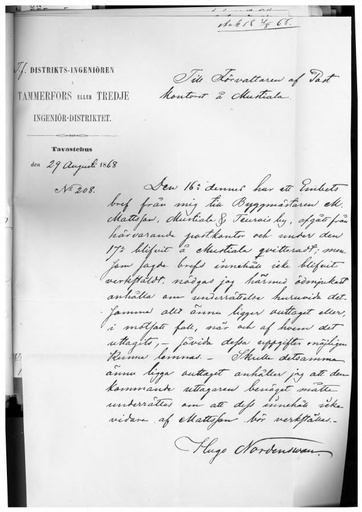 T.f. DISTRIKTS-INGENIÖREN
I
TAMMERFORS ELLER TREDJE
INGENIÖR-DISTRIKTET.
Tavastehus
den 29 Augusti 1868
No 208.
Till Förvaltaren af Post
kontoret å Mustiala
Den 16de dennes har ett Embets
bref från mig till Byggmästaren M.
Mattsson, Mustiala & Teuroisby, afgått från
härvarande postkontor och under den
17de blifvit å Mustiala qvitteradt; men
som sagde brefs innehåll icke blifvit
verkställdt, nödgas jag härmed ödmjukast
anhålla om underrättelse huruvida det-
samma altid ännu ligger outtaget eller,
i motsatt fall, när och af hvem det
uttagits, – såvida dessa uppgifter möjligen
kunna lemnas. – Skulle detsamma
ännu ligga outtaget anhåller jag att den
kommande uttagaren benäget måtte
underrättas om att dess innehåll icke
vidare af Mattsson bör verkställas. –
Hugo Nordenswan.